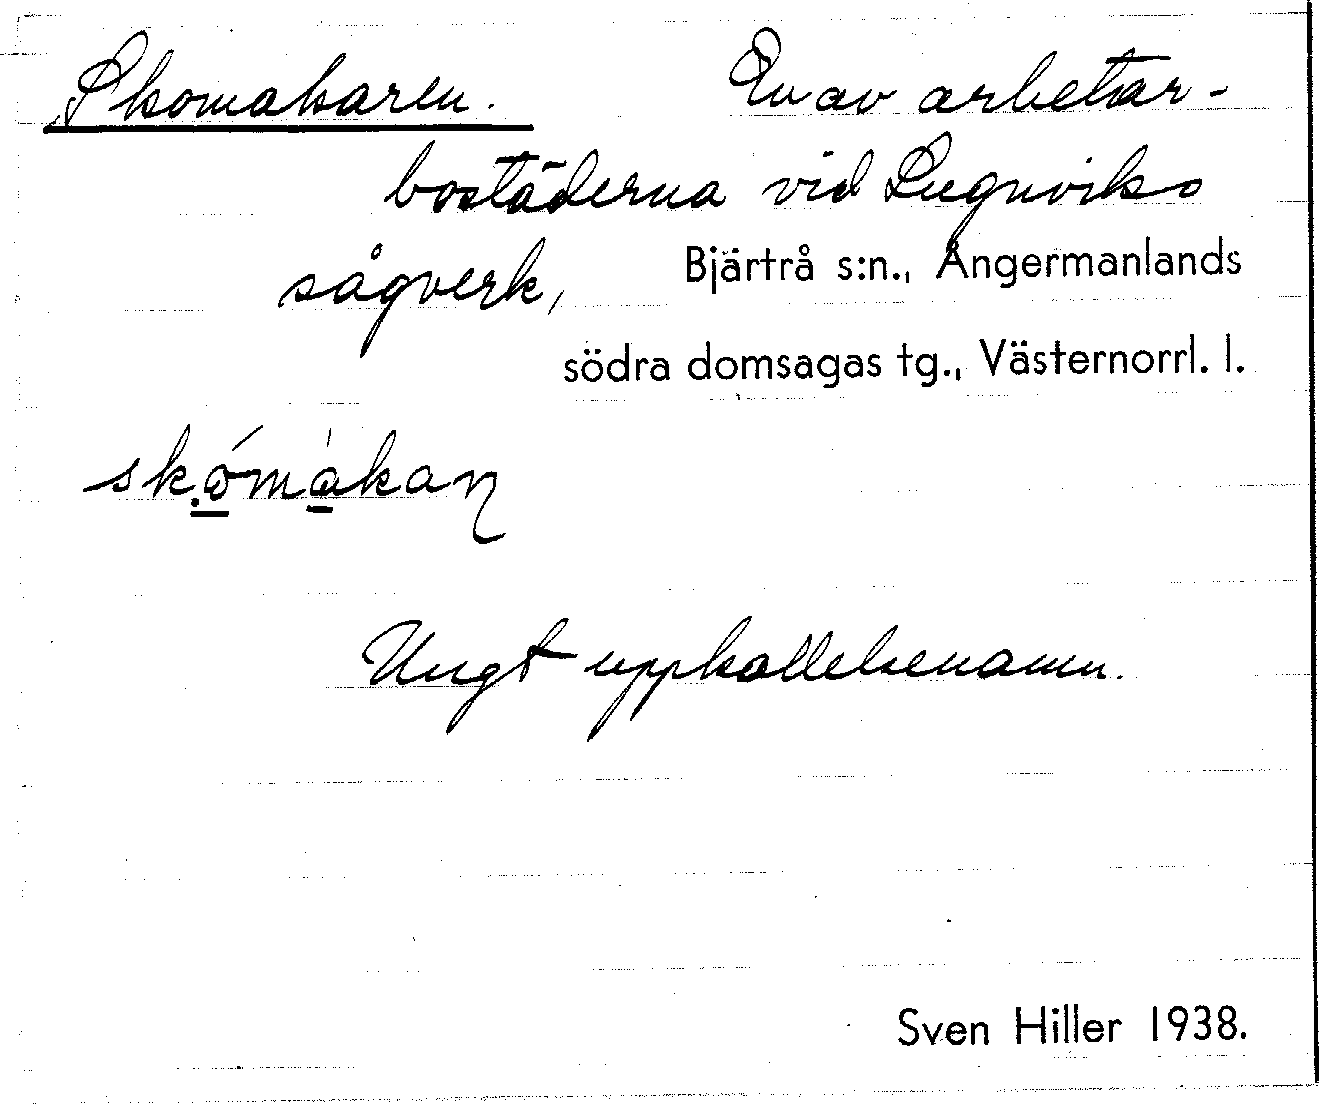 Skomakaren. En av arbetar-
bostäderna vid Lugnviks
sågverk, Bjärtrå s:n., Ångermanlands
södra domsagas tg., Västernorrl. l.
skómàkaɳ
Ungt uppkallelsenamn.
Sven Hiller 1938.